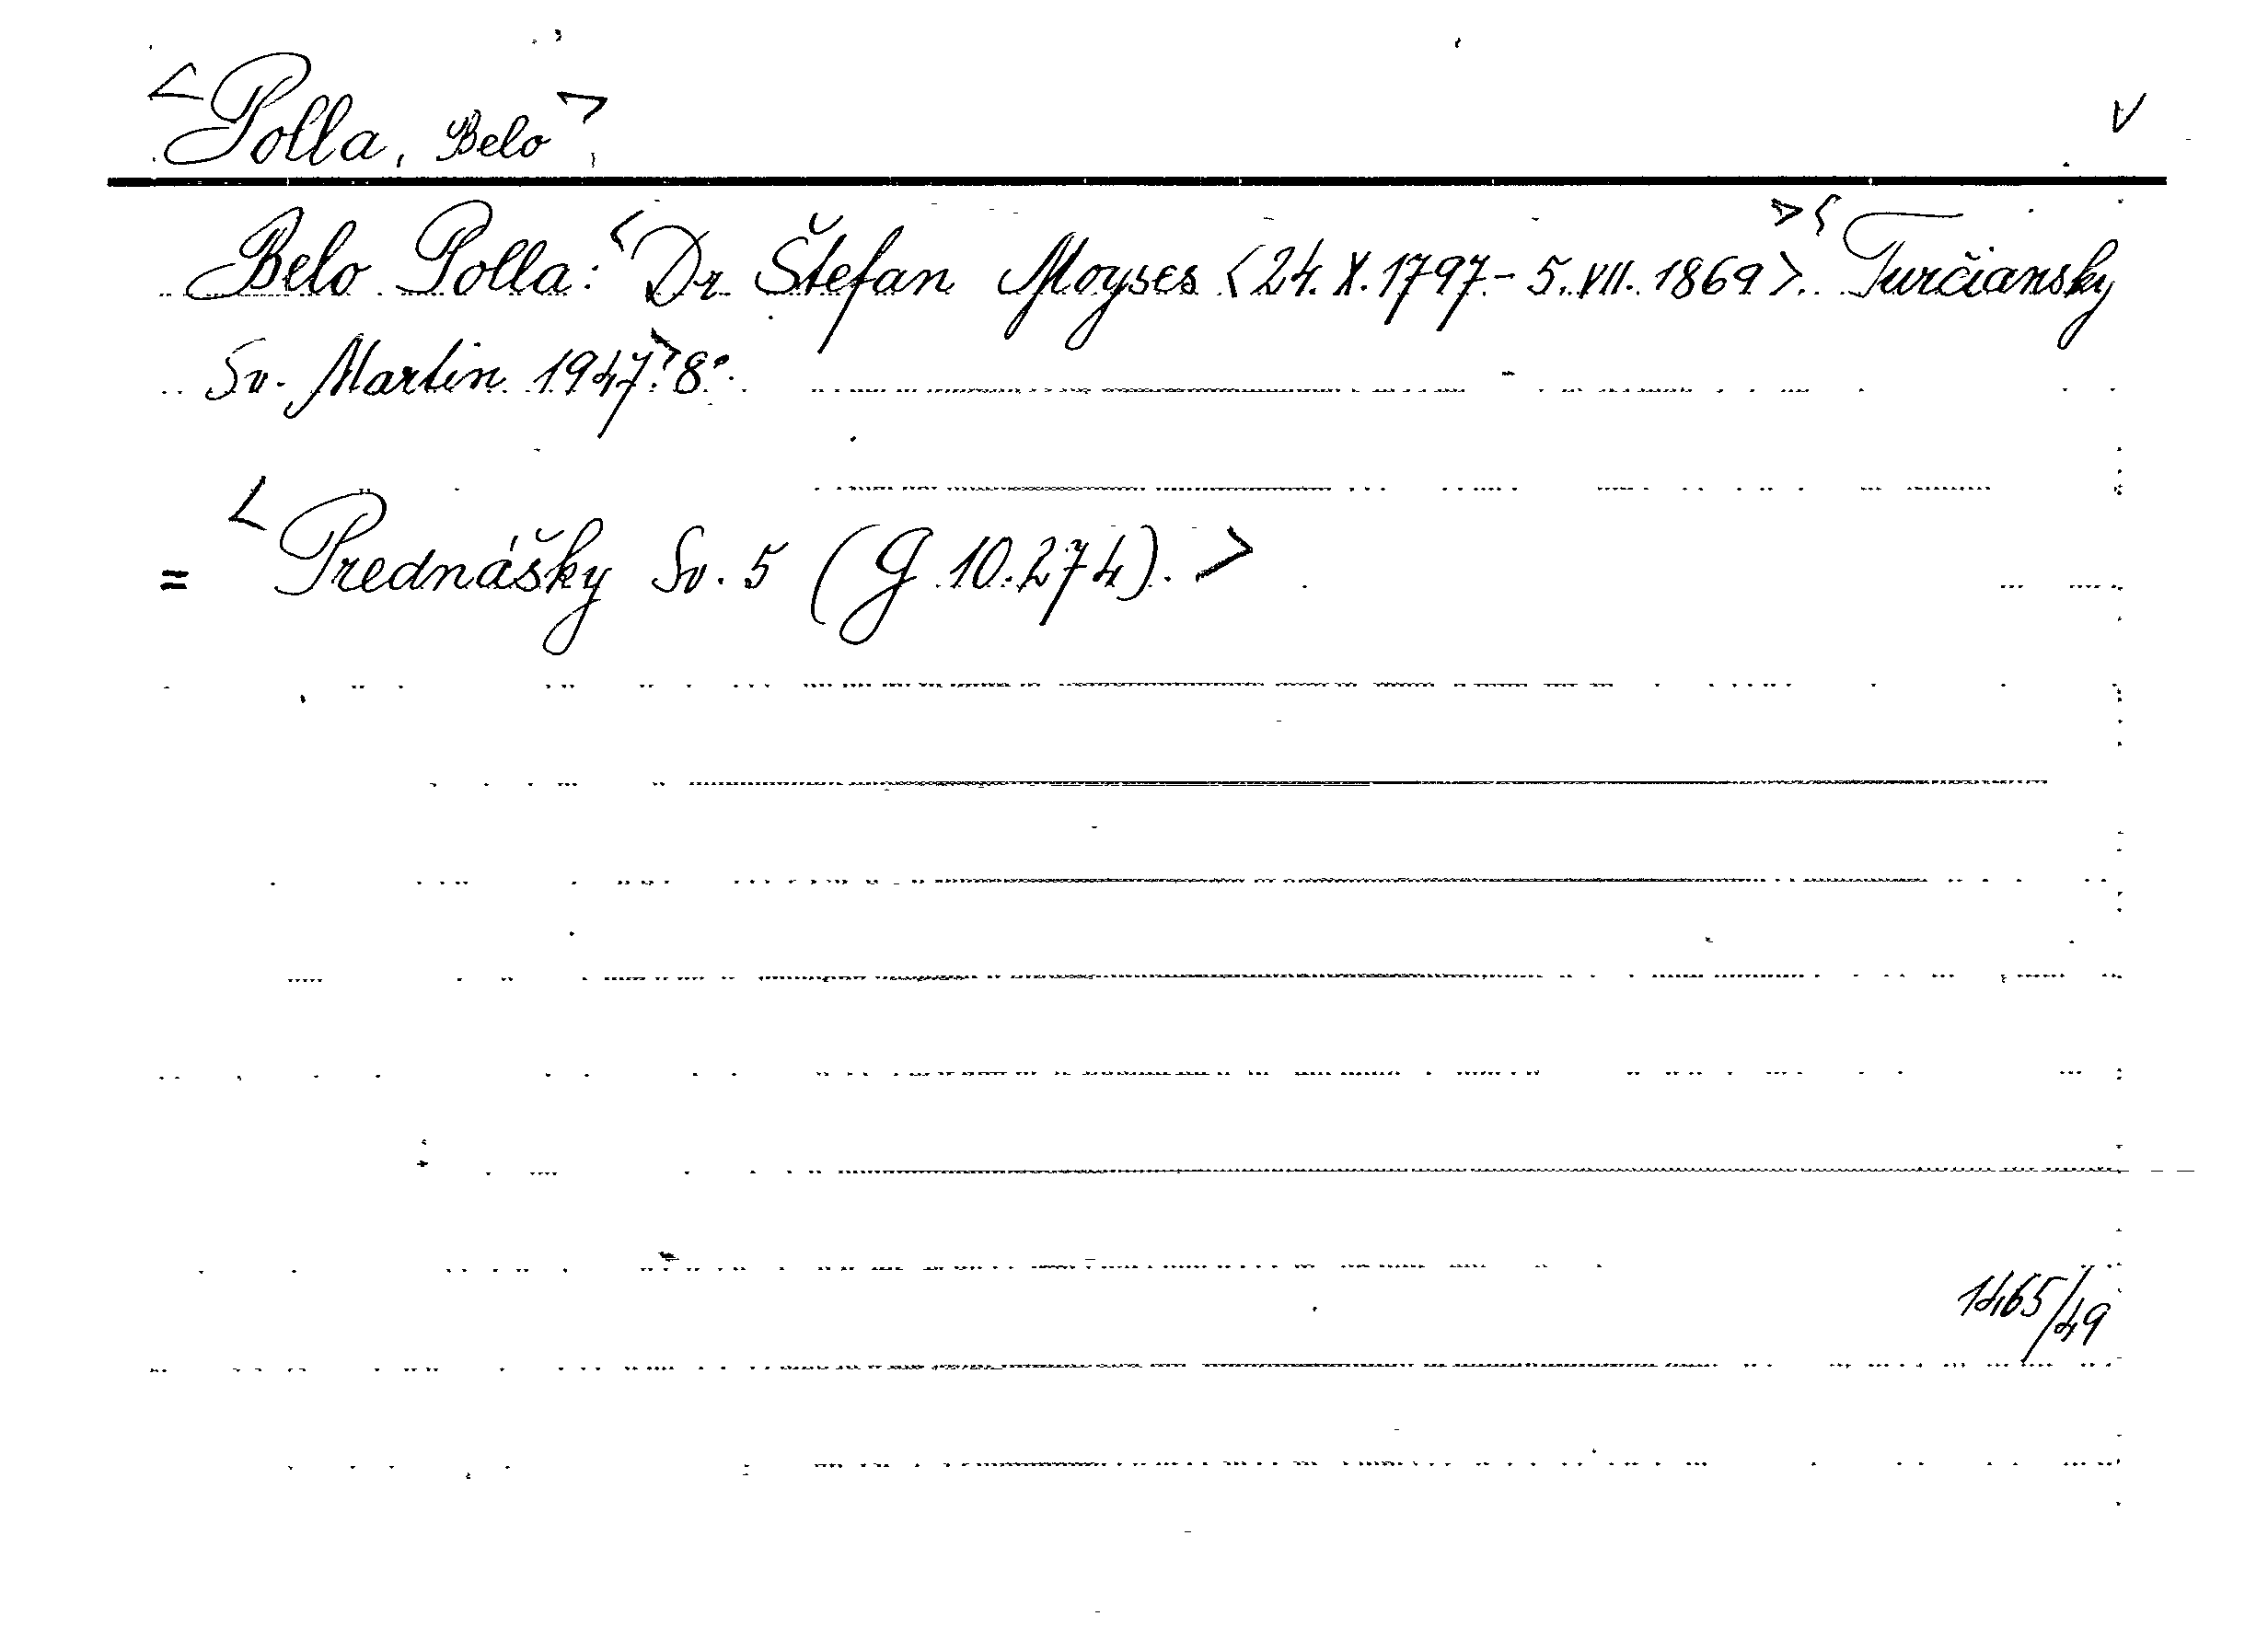 <Polla, Belo> V
Belo Polla: <Dr Štefan Moyses <24. X. 1797 - 5. VII. 1869>. > < Turčiansky
Sv. Martin 1947.> 8°.
= <Prednášky Sv. 5 (G 10.274). >
1465/49